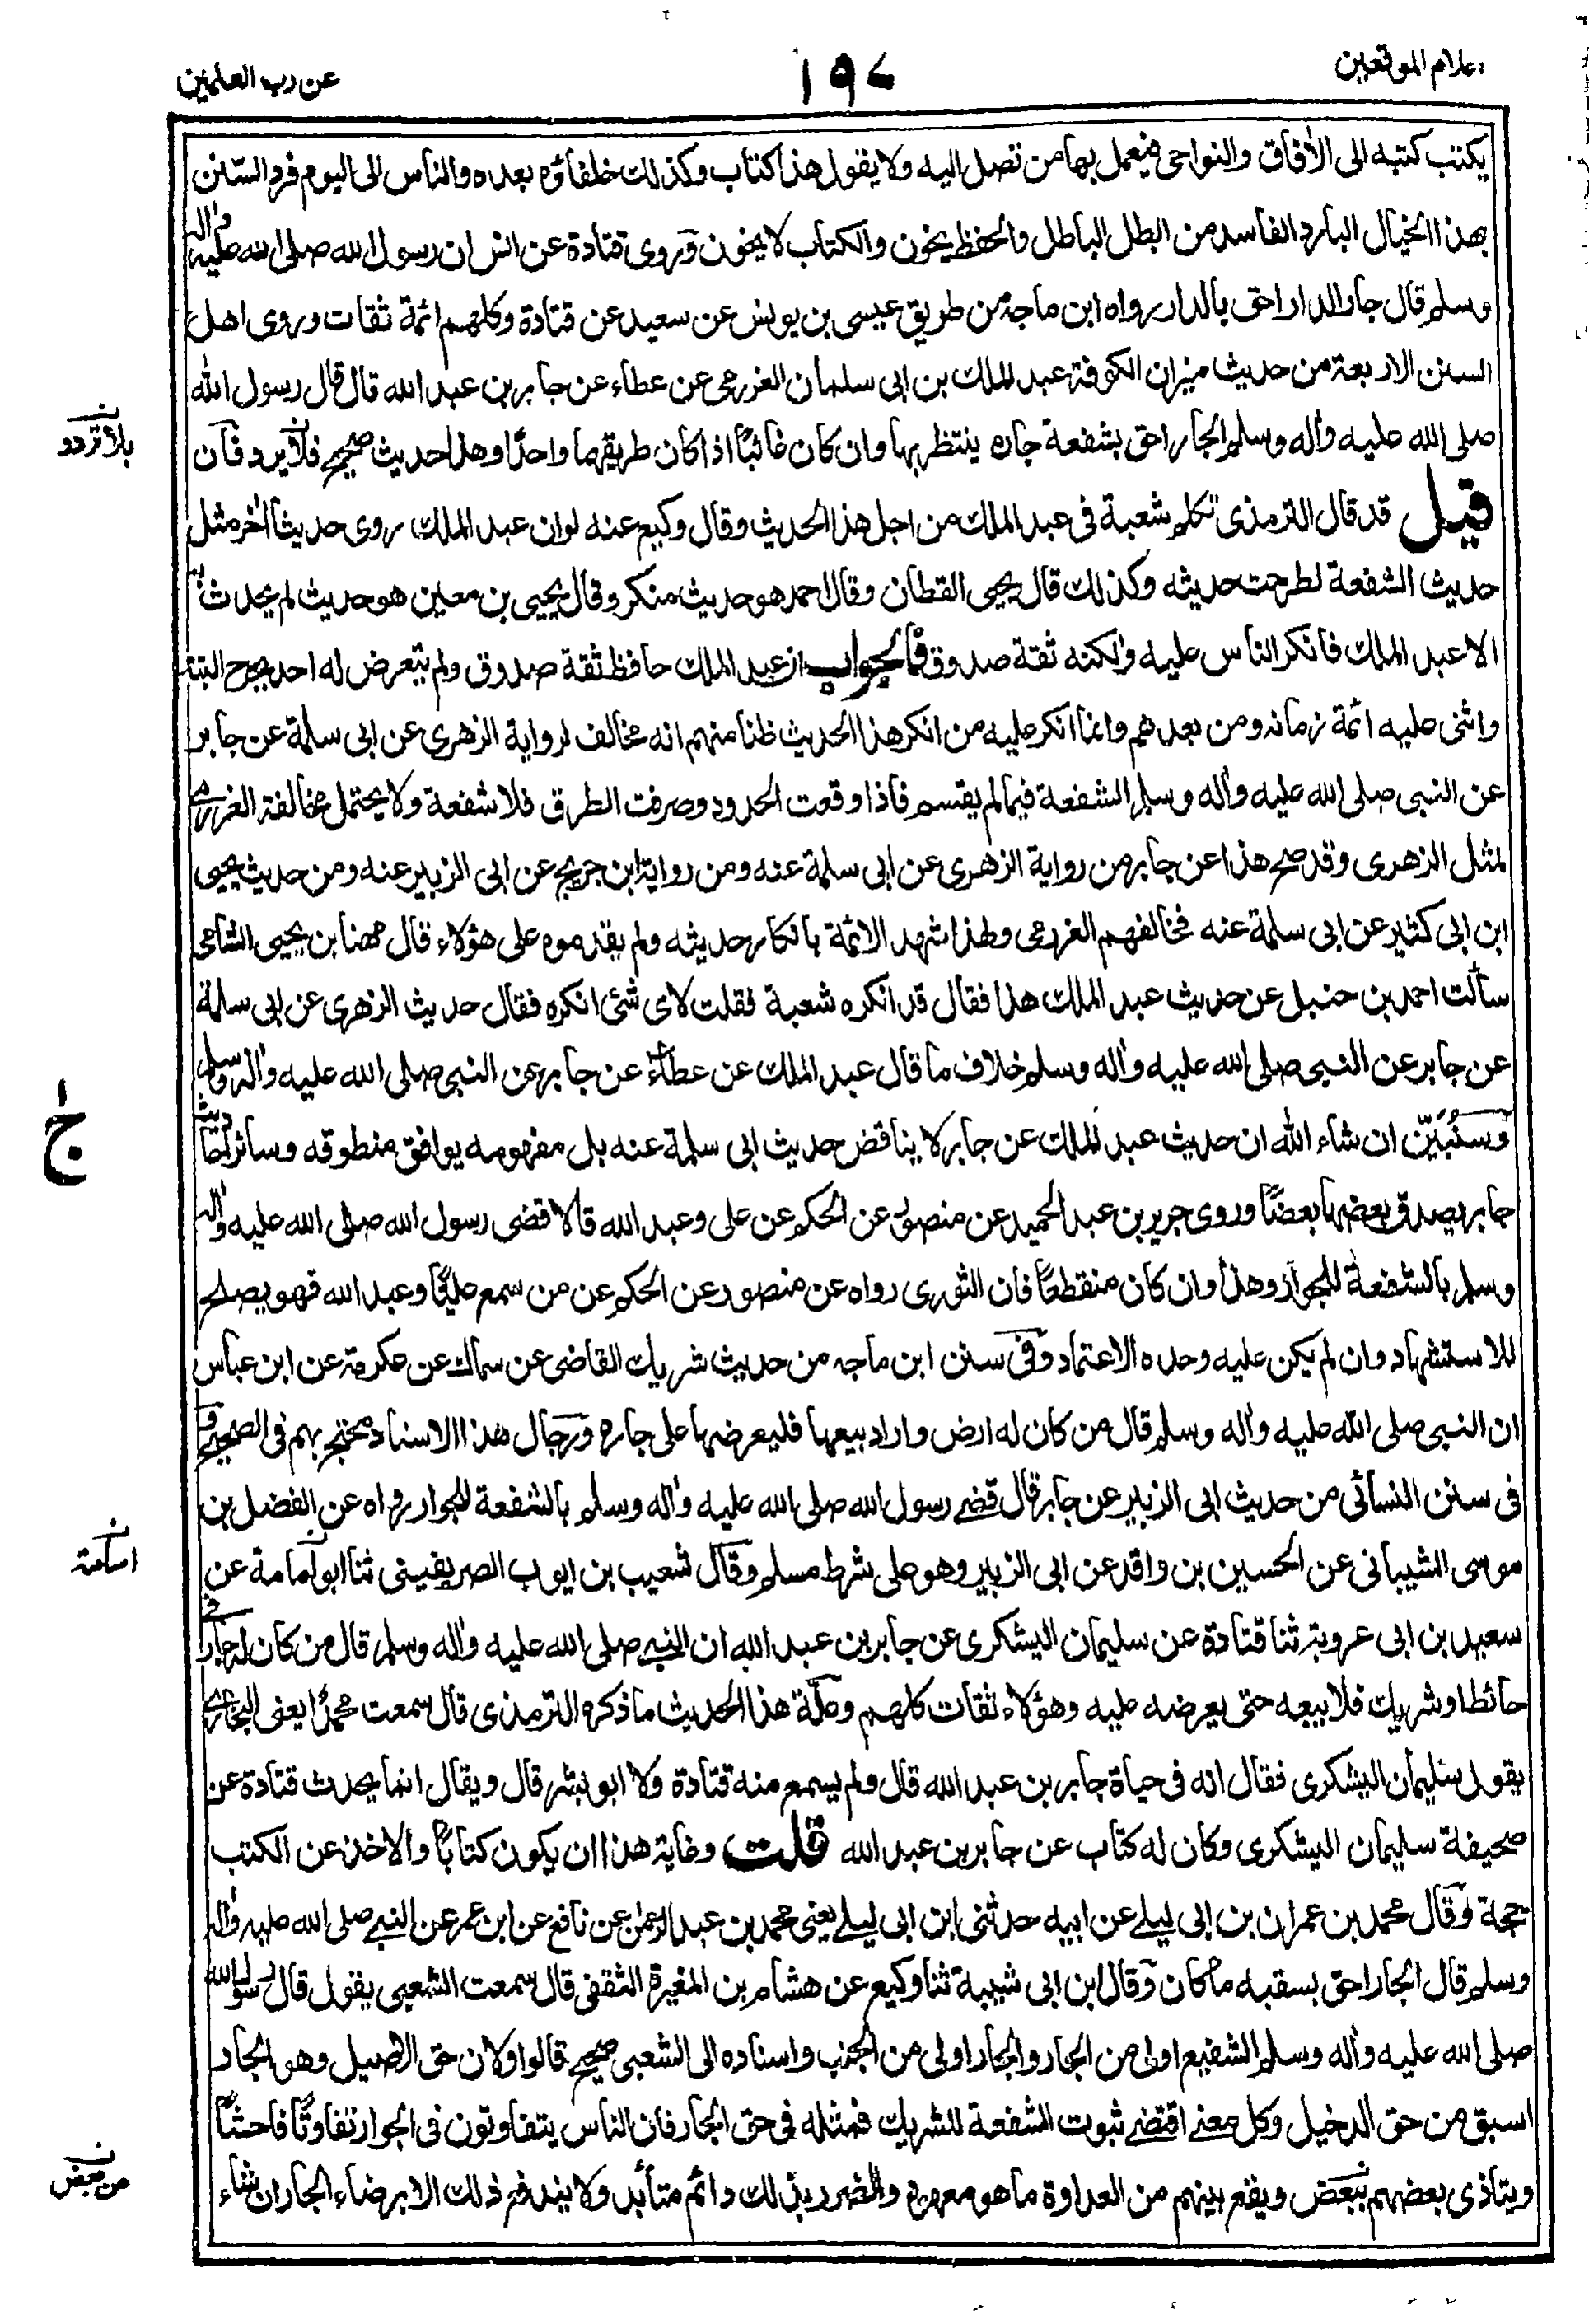 اعلام الموقعين
١٩٧
عن رب العلمين
يكتب كتبه الى الأفاق والنواحى فيعمل بها من تصل اليه ولا يقول هذا كتاب وكذلك خلفاؤه بعده والناس الى اليوم فرد السّنن
بهذا الخيال البارد الفاسد من ابطل الباطل والحفظ يخون والكتاب لا يخون وروى قتادة عن انس ان رسول الله صلى الله عليه واله
وسلم قال جار الدار احق بالدار رواه ابن ماجه من طريق عيسى بن يونس عن سعيد عن قتادة وكلهم ائمة ثقات وروى اهل
السنن الاربعة من حديث ميزان الكوفة عبد الملك بن ابى سلمان العزرمى عن عطاء عن جابر بن عبد الله قال قال رسول الله
صلى الله عليه واٰله وسلم الجار احق بشفعة جاره ينتظر بها وان كان غائبًا اذا كان طريقهما واحدًا وهذا حديث صحيح فلا يرد فان
بلا تردد
قيل قد قال الترمذى تكلم شعبة فى عبد الملك من اجل هذا الحديث وقال وكيع عنه لو ان عبد الملك روى حديثا اٰخر مثل
حديث الشفعة لطرحت حديثه وكذلك قال يحيى القطان وقال احمد هو حديث منكر وقال يحيى بن معين هو حديث لم يحدث به
الا عبد الملك فانكر الناس عليه ولكنه ثقة صدوق فالجواب ان عبد الملك حافظ ثقة صدوق ولم يتعرض له احد بجرح البتة
واثنى عليه ائمة زمانه ومن بعدهم وانما انكر عليه من انكر هذا الحديث ظنا منهم انه مخالف لرواية الزهرى عن ابى سلمة عن جابر
عن النبى صلى الله عليه واٰله وسلم الشفعة فيما لم يقسم فاذا وقعت الحدود وصرفت الطرق فلا شفعة ولا يحتمل مخالفة العزرمى
لمثل الزهرى وقد صح هذا عن جابر من رواية الزهرى عن ابى سلمة عنه ومن رواية ابن جريج عن ابى الزبير عنه ومن حديث يحيى
ابن ابى كثير عن ابى سلمة عنه فخالفهم العزرمى ولهذا شهد الائمة بانكار حديثه ولم يقدموه على هؤلاء قال مهنا بن يحيى الشامى
سألت احمد بن حنبل عن حديث عبد الملك هذا فقال قد انكره شعبة فقلت لاى شئ انكره فقال حديث الزهرى عن ابى سلمة
عن جابر عن النبى صلى الله عليه واٰله وسلم خلاف ما قال عبد الملك عن عطاء عن جابر عن النبى صلى الله عليه واٰله وسلم
وسنُبيّن ان شاء الله ان حديث عبد الملك عن جابر لا يناقض حديث ابى سلمة عنه بل مفهومه يوافق منطوقه وسائر احاديث
جابر يصدق بعضها بعضًا وروى جرير بن عبد الحميد عن منصور عن الحكم عن على وعبد الله قالا قضى رسول الله صلى الله عليه واٰله
وسلم بالشفعة للجوار وهذا وان كان منقطعًا فان الثورى رواه عن منصور عن الحكم عن من سمع عليًّا وعبد الله فهو يصلح
للاستشهاد وان لم يكن عليه وحده الاعتماد وفى سنن ابن ماجه من حديث شريك القاضى عن سماك عن عكرمة عن ابن عباس
ان النبى صلى الله عليه واٰله وسلم قال من كان له ارض واراد بيعها فليعرضها على جاره ورجال هذا الاسناد محتج بهم فى الصحيح و
فى سنن النسائى من حديث ابى الزبير عن جابر قال قضى رسول الله صلى الله عليه واٰله وسلم بالشفعة للجوار رواه عن الفضل بن
موسى الشيبانى عن الحسين بن واقد عن ابى الزبير وهو على شرط مسلم وقال شعيب بن ايوب الصريفينى ثنا ابو امامة عن
اسامة
سعيد بن ابى عروبة ثنا قتادة عن سليمان اليشكرى عن جابر بن عبد الله ان النبى صلى الله عليه واٰله وسلم قال من كان له جار فى
حائط او شريك فلا يبعه حتى يعرضه عليه وهؤلاء ثقات كلهم وعلّة هذا الحديث ما ذكره الترمذى قال سمعت محمدًا يعنى البخارى
يقول سليمان اليشكرى فقال انه فى حياة جابر بن عبد الله قال ولم يسمع منه قتادة ولا ابو بشر قال ويقال انما يحدث قتادة عن
صحيفة سليمان اليشكرى وكان له كتاب عن جابر بن عبد الله قلت وغاية هذا ان يكون كتابًا والاخذ عن الكتب
حجة وقال محمد بن عمران بن ابى ليلى عن ابيه حدثنى ابن ابى ليلى يعنى محمد بن عبد الرحمن عن نافع عن ابن عمر عن النبى صلى الله عليه واٰله
وسلم قال الجار احق بسقبه ما كان وقال ابن ابى شيبة ثنا وكيع عن هشام بن المغيرة الثقفى قال سمعت الشعبى يقول قال رسول الله
صلى الله عليه واٰله وسلم الشفيع اولى من الجار والجار اولى من الجنب واسناده الى الشعبى صحيح قالوا ولان حق الاصيل وهو الجار
اسبق من حق الدخيل وكل معنى اقتضى ثبوت الشفعة للشريك فمثله فى حق الجار فان الناس يتفاوتون فى الجوار تفاوتًا فاحشًا
ويتاذى بعضهم ببعض ويقع بينهم من العداوة ما هو معهود والضرر بذلك دائم متأبد ولا يندفع ذلك الا برضاء الجار ان شاء
من بعض